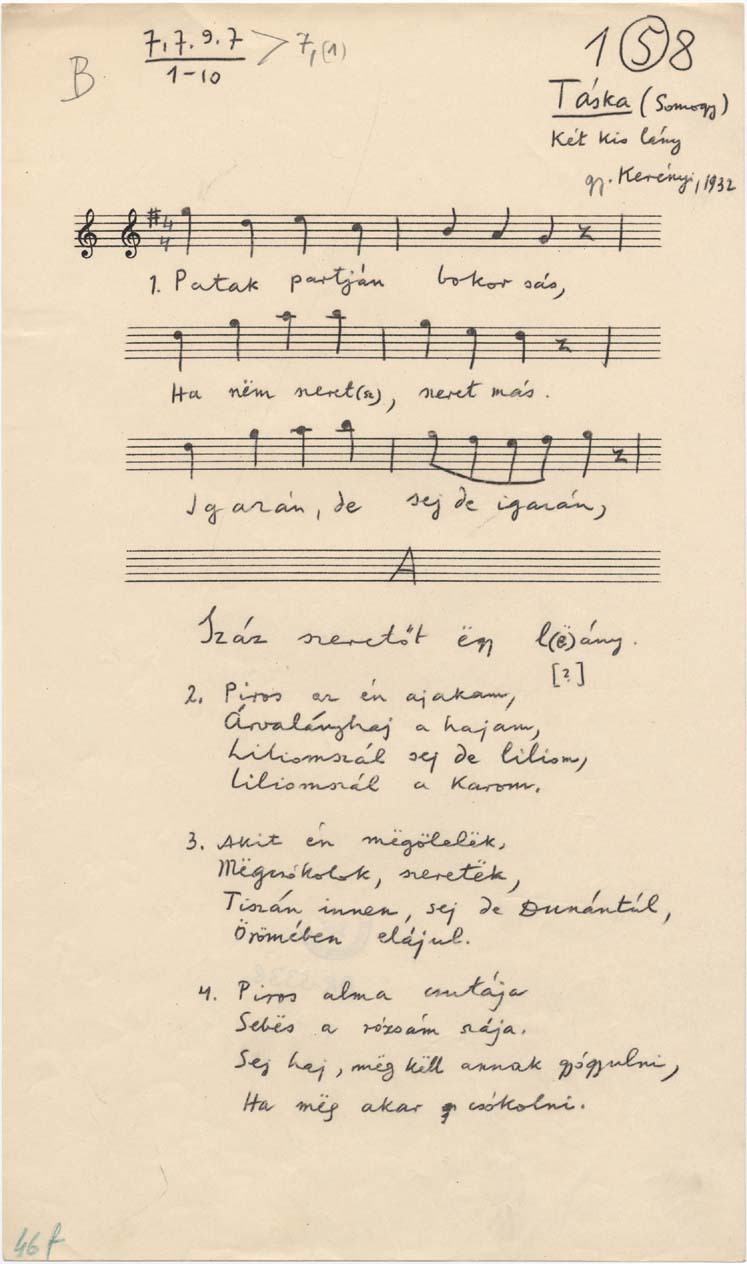 B
7, 7. 9. 7 > 7,(1)
1-10
1 5 8
Táska (Somogy)
Két kis lány
gy. Kerényi, 1932
4
4
1. Patak partján bokor sás,
Ha nëm szeret(sz), szeret más.
Igazán, de sej de igazán,
A
Száz szeretőt ëgy l(ë)ány.
[?]
2. Piros az én ajakam,
Árvalányhaj a hajam,
Liliomszál sej de liliom,
Liliomszál a karom.
3. Akit én mëgölelëk,
Mëgcsókolok, szeretëk,
Tiszán innen, sej de Dunántúl,
Örömében elájul.
4. Piros alma csutája
Sebës a rózsám szája.
Sej haj, mëg këll annak gyógyulni,
Ha mëg akar csókolni.
46 f